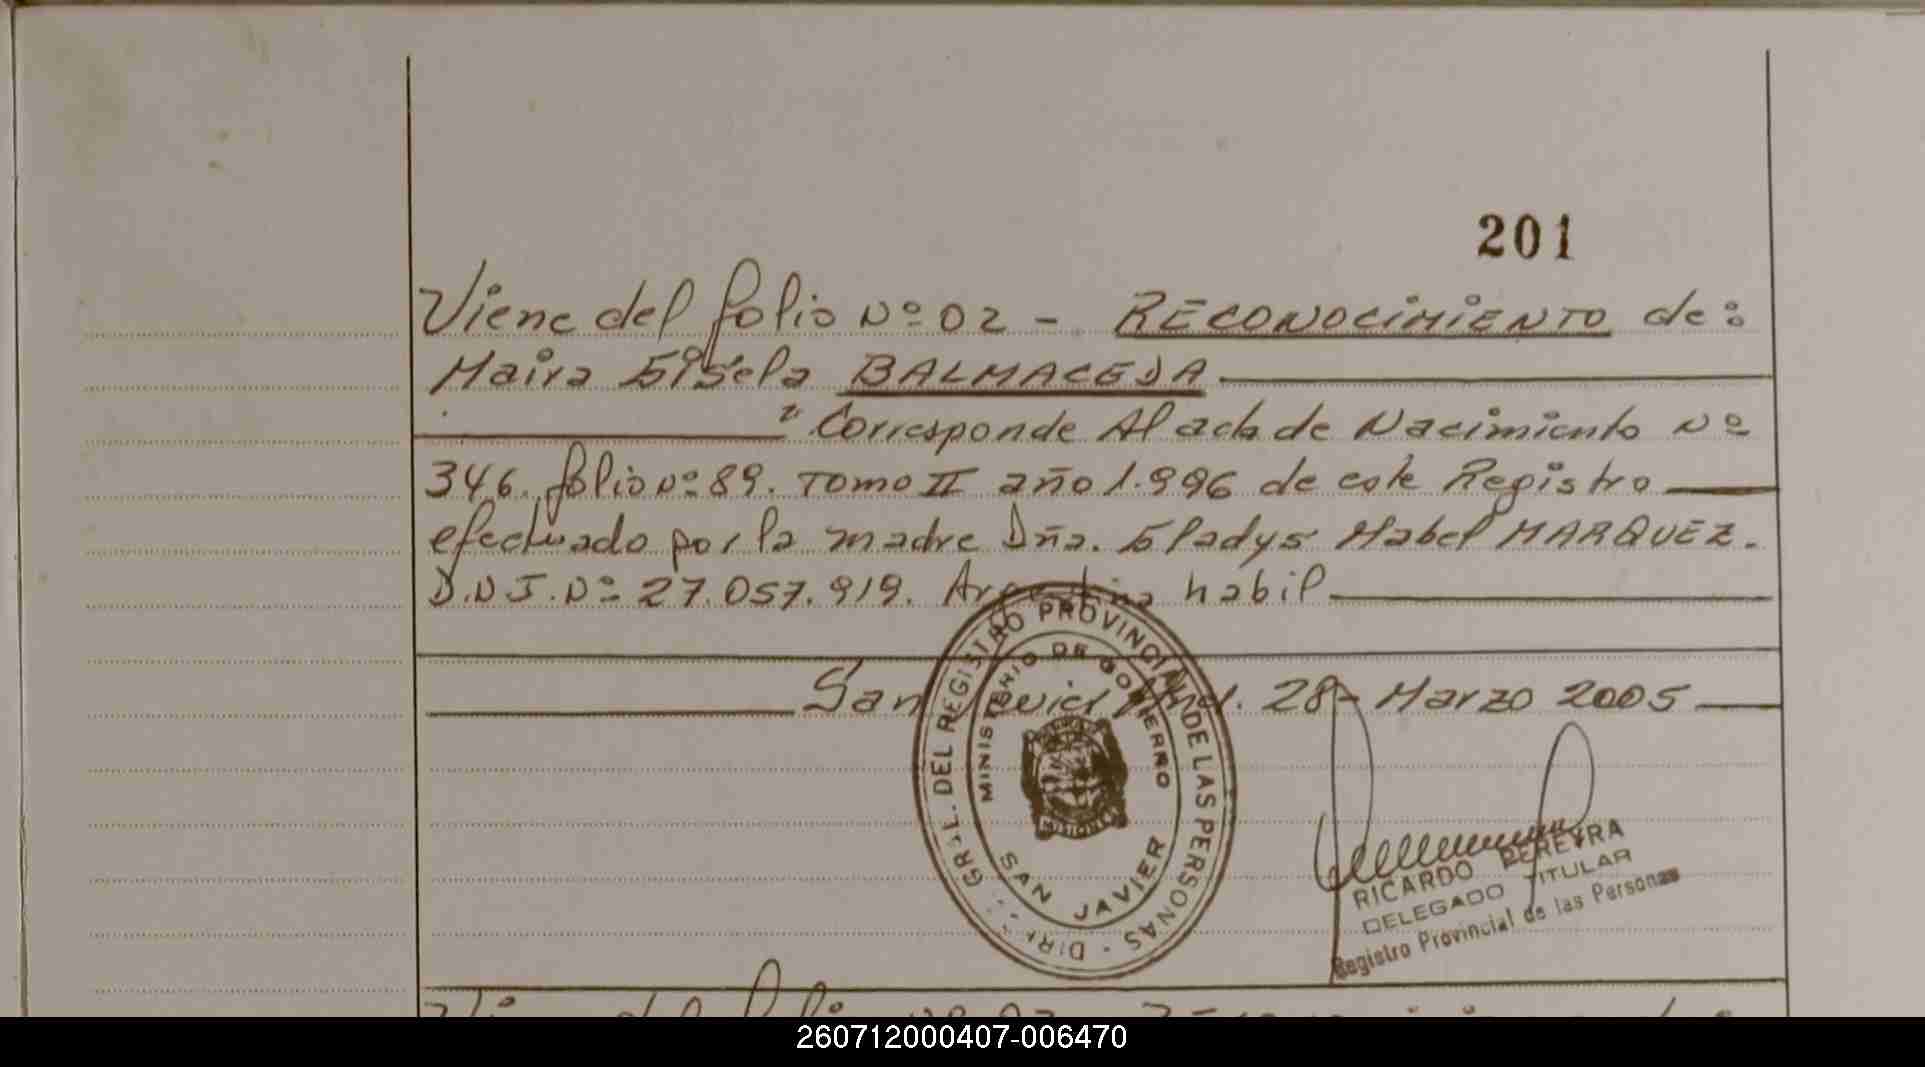 201
Viene del folio Nº 02 - RECONOCIMIENTO de:
Maira Gisela BALMACEDA
" Corresponde Al acta de Nacimiento Nº
346. folio Nº 89. Tomo II año 1.996 de este Registro
efectuado por la madre Dña. Gladys Mabel MARQUEZ.
D.N.I. Nº 27.057.919. Argentina habil
San Javier Mnes. 28 - Marzo 2005
GRAL. DEL REGISTRO PROVINCIAL DE LAS PERSONAS - DIR
MINISTERIO DE GOBIERNO
MISIONES
SAN JAVIER
RICARDO PEREYRA
DELEGADO TITULAR
Registro Provincial de las Personas
260712000407-006470